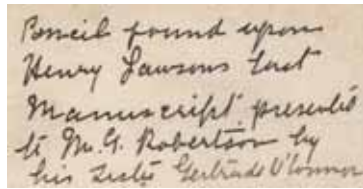 Pencil found upon
Henry Lawsons last
Manuscript. presented
to Mr. G. Robertson by
his sister Gertrude O'Connor